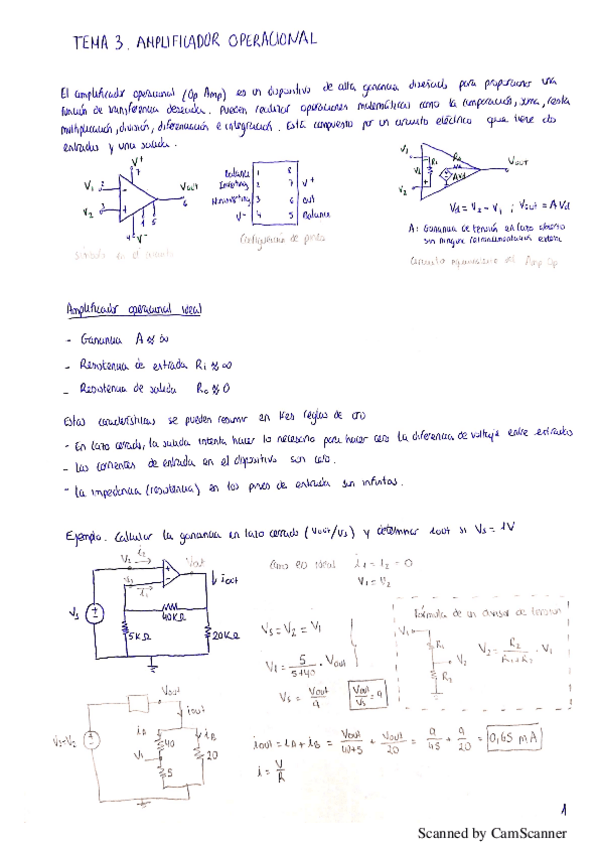 TEMA 3. AMPLIFICADOR OPERACIONAL
El amplificador operacional (Op Amp) es un dispositivo de alta ganancia diseñado para proporcionar una
función de transferencia deseada. Pueden realizar operaciones matemáticas como la comparación, suma, resta
multiplicación, división, diferenciación e integración. Está compuesto por un circuito eléctrico que tiene dos
entradas y una salida.
V+
7
V1 2
V2 3
Vout
6
1 5
4 V-
Símbolo en el circuito
Balance 1 8
Inverting 2 7 V+
Noninverting 3 6 out
V- 4 5 Balance
Configuración de pines
V1
V2
Ri
Ro
AVd
Vout
Vd = V2 - V1 ; Vout = A Vd
A: Ganancia de tensión en lazo abierto
sin ninguna retroalimentación externa
Circuito equivalente del Amp Op
Amplificador operacional ideal
- Ganancia A ≈ ∞
- Resistencia de entrada Ri ≈ ∞
- Resistencia de salida Ro ≈ 0
Estas características se pueden resumir en tres reglas de oro
- En lazo cerrado, la salida intenta hacer lo necesario para hacer cero la diferencia de voltaje entre entradas
- Las corrientes de entrada en el dispositivo son cero.
- La impedancia (resistencia) en los pines de entrada son infinitas.
Ejemplo. Calcular la ganancia en lazo cerrado (Vout/Vs) y determinar iout si Vs = 1V
V2 i2
Vout
i1
iout
Vs
40KΩ
5KΩ
20KΩ
ideal i1 = i2 = 0
V1 = V2
Vs = V2 = V1
V1 = 5/(5+40) · Vout
Vs = Vout/9
Vout/Vs = 9
Fórmula de un divisor de tensión
V1
R1
V2
R2
V2 = R2/(R1+R2) · V1
Vout
iout
Vs=V2
iA
iB
40
V1
20
5
iout = iA + iB = Vout/(40+5) + Vout/20 = 9/45 + 9/20 = 0,65 mA
i = V/R
1
Scanned by CamScanner